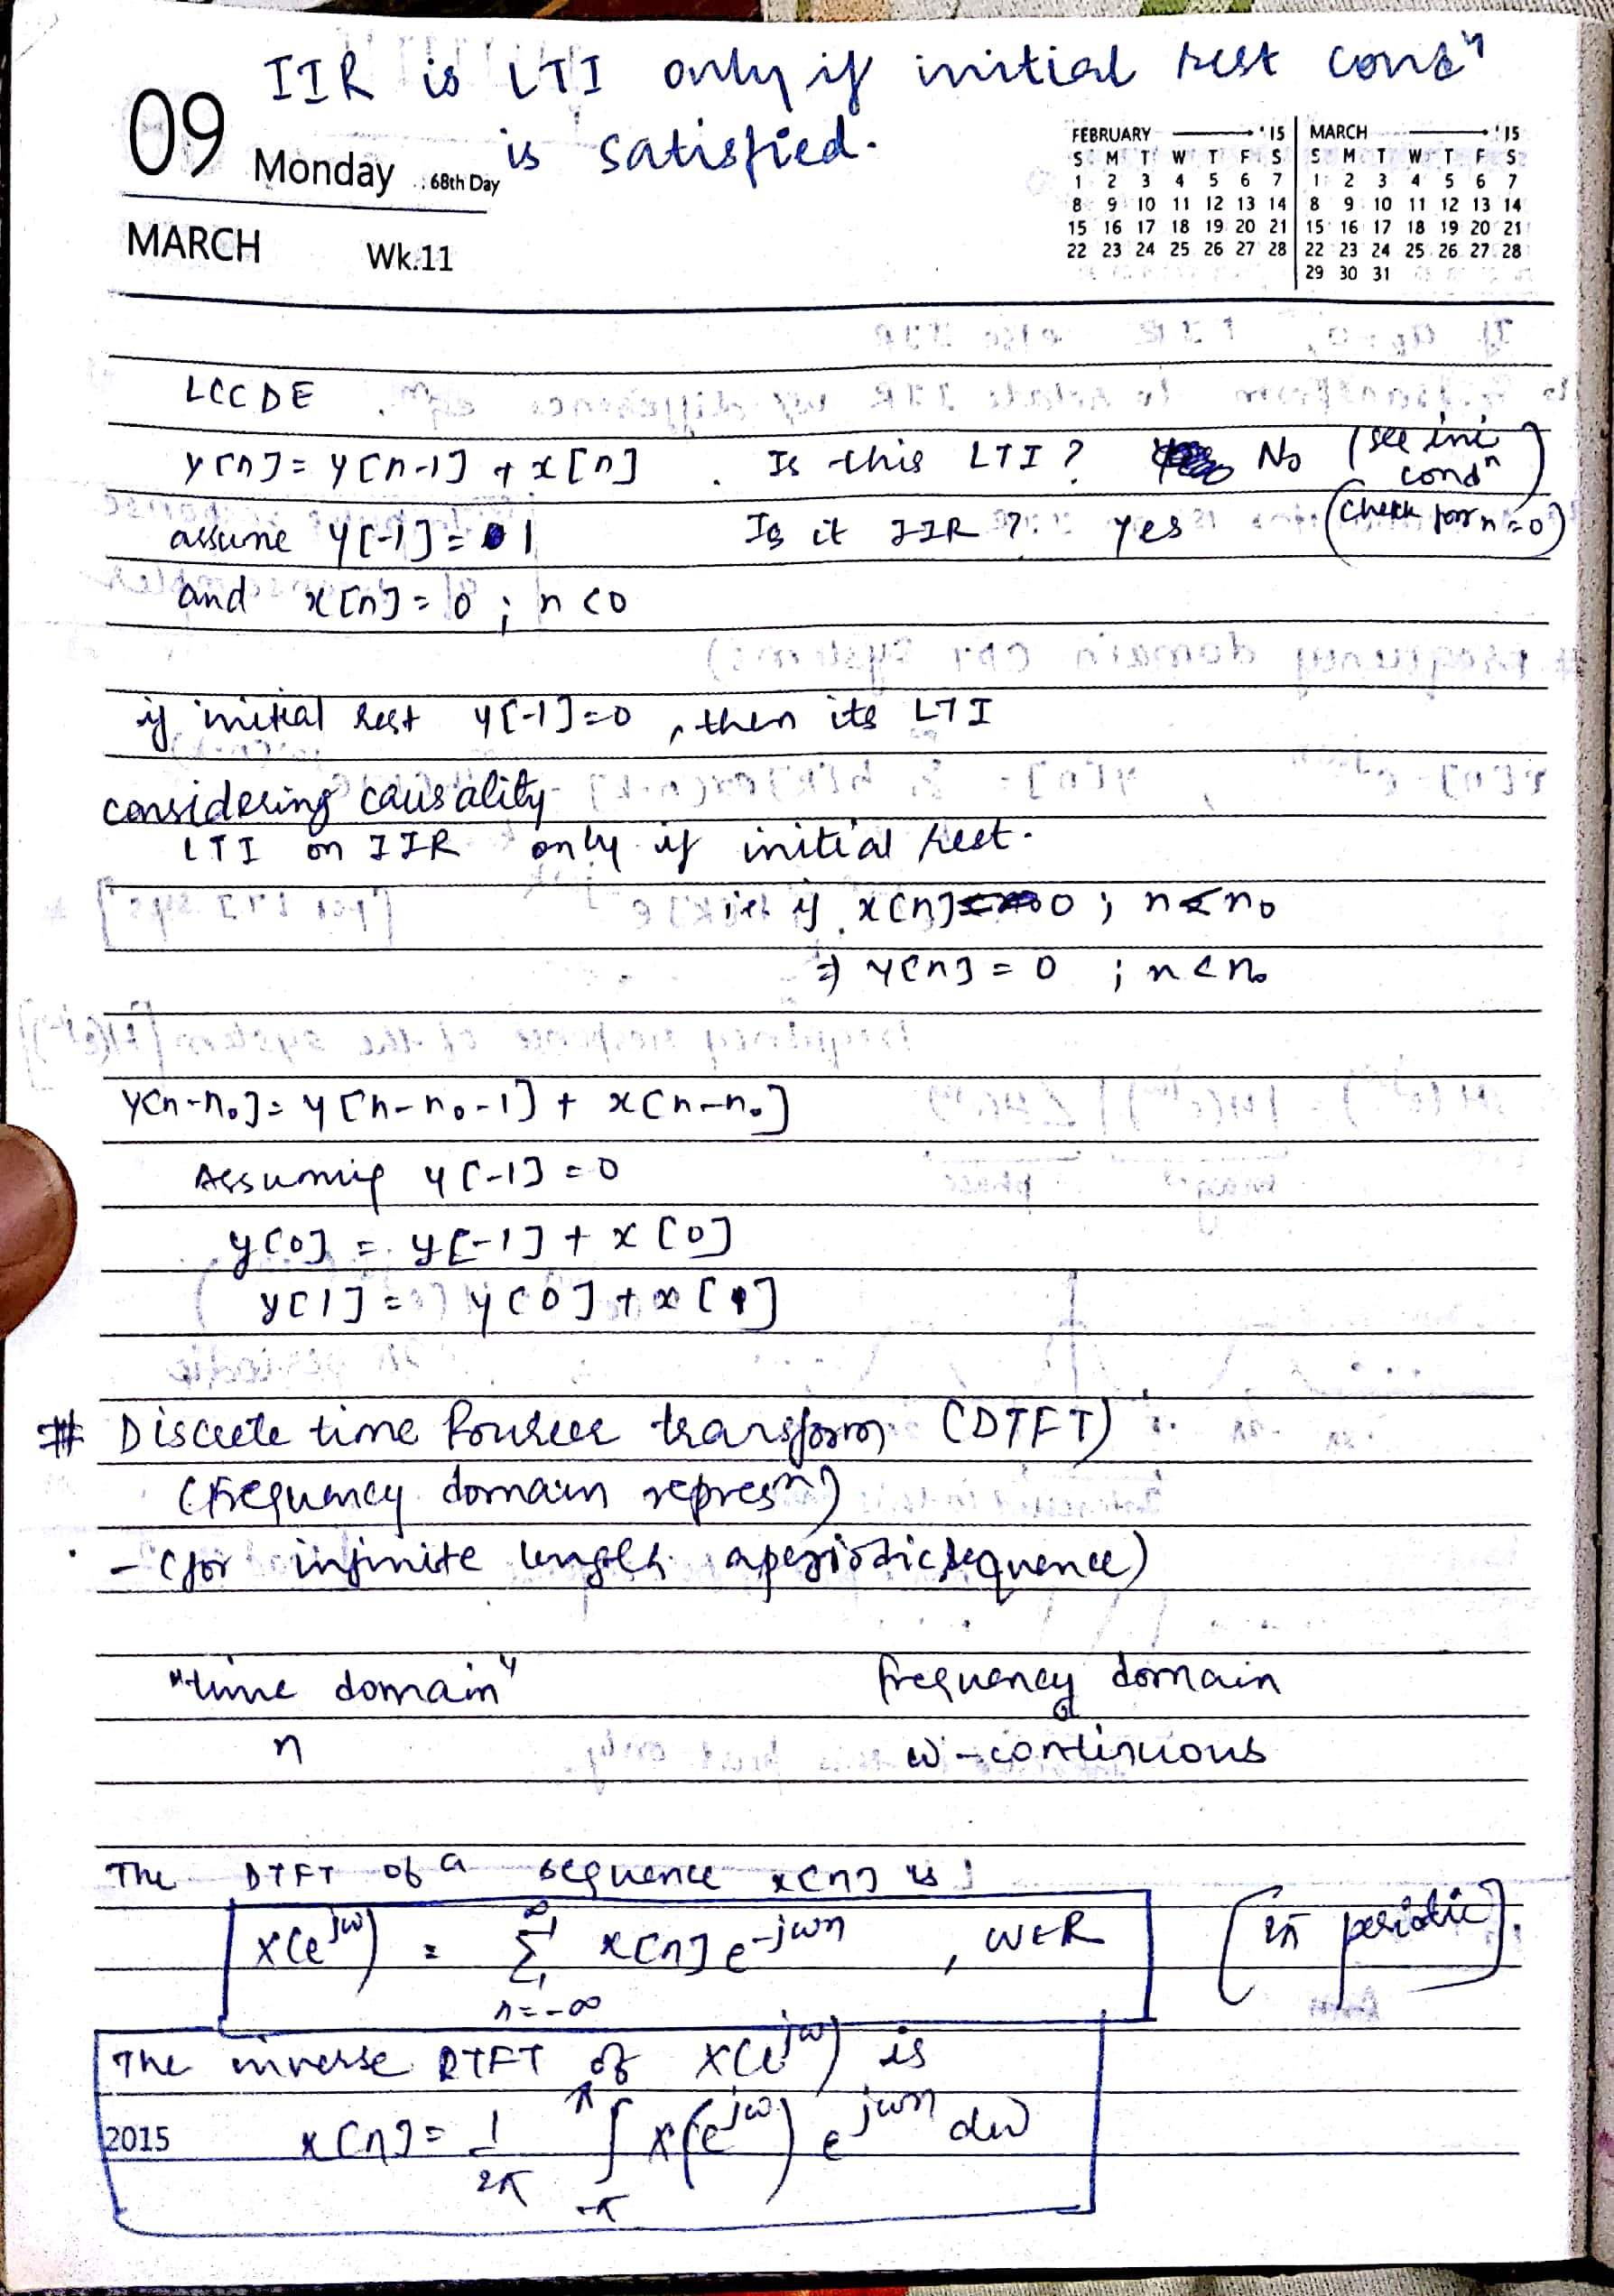 IIR is LTI only if initial rest condⁿ
is satisfied.
09 Monday 68th Day
MARCH Wk.11
FEBRUARY '15
S M T W T F S
1 2 3 4 5 6 7
8 9 10 11 12 13 14
15 16 17 18 19 20 21
22 23 24 25 26 27 28
MARCH '15
S M T W T F S
1 2 3 4 5 6 7
8 9 10 11 12 13 14
15 16 17 18 19 20 21
22 23 24 25 26 27 28
29 30 31
LCCDE
y[n] = y[n-1] + x[n] . Is this LTI? No (see ini condⁿ)
assume y[-1] = 1 Is it IIR? Yes (check for n=0)
and x[n] = 0 ; n<0
if initial rest y[-1]=0, then its LTI
considering causality
LTI on IIR only if initial rest.
i.e. if x[n] = 0 ; n<n₀
⇒ y[n] = 0 ; n<n₀
y[n-n₀] = y[n-n₀-1] + x[n-n₀]
Assuming y[-1] = 0
y[0] = y[-1] + x[0]
y[1] = y[0] + x[1]
# Discrete time Fourier transform (DTFT)
(Frequency domain represⁿ)
- (for infinite length aperiodic sequence)
"time domain" frequency domain
n ω - continuous
The DTFT of a sequence x[n] is :
X(e^{jω}) = Σ_{n=-∞}^{∞} x[n] e^{-jωn} , ω∈R [2π periodic].
The inverse DTFT of X(e^{jω}) is
x[n] = 1/2π ∫_{-π}^{π} X(e^{jω}) e^{jωn} dω
2015